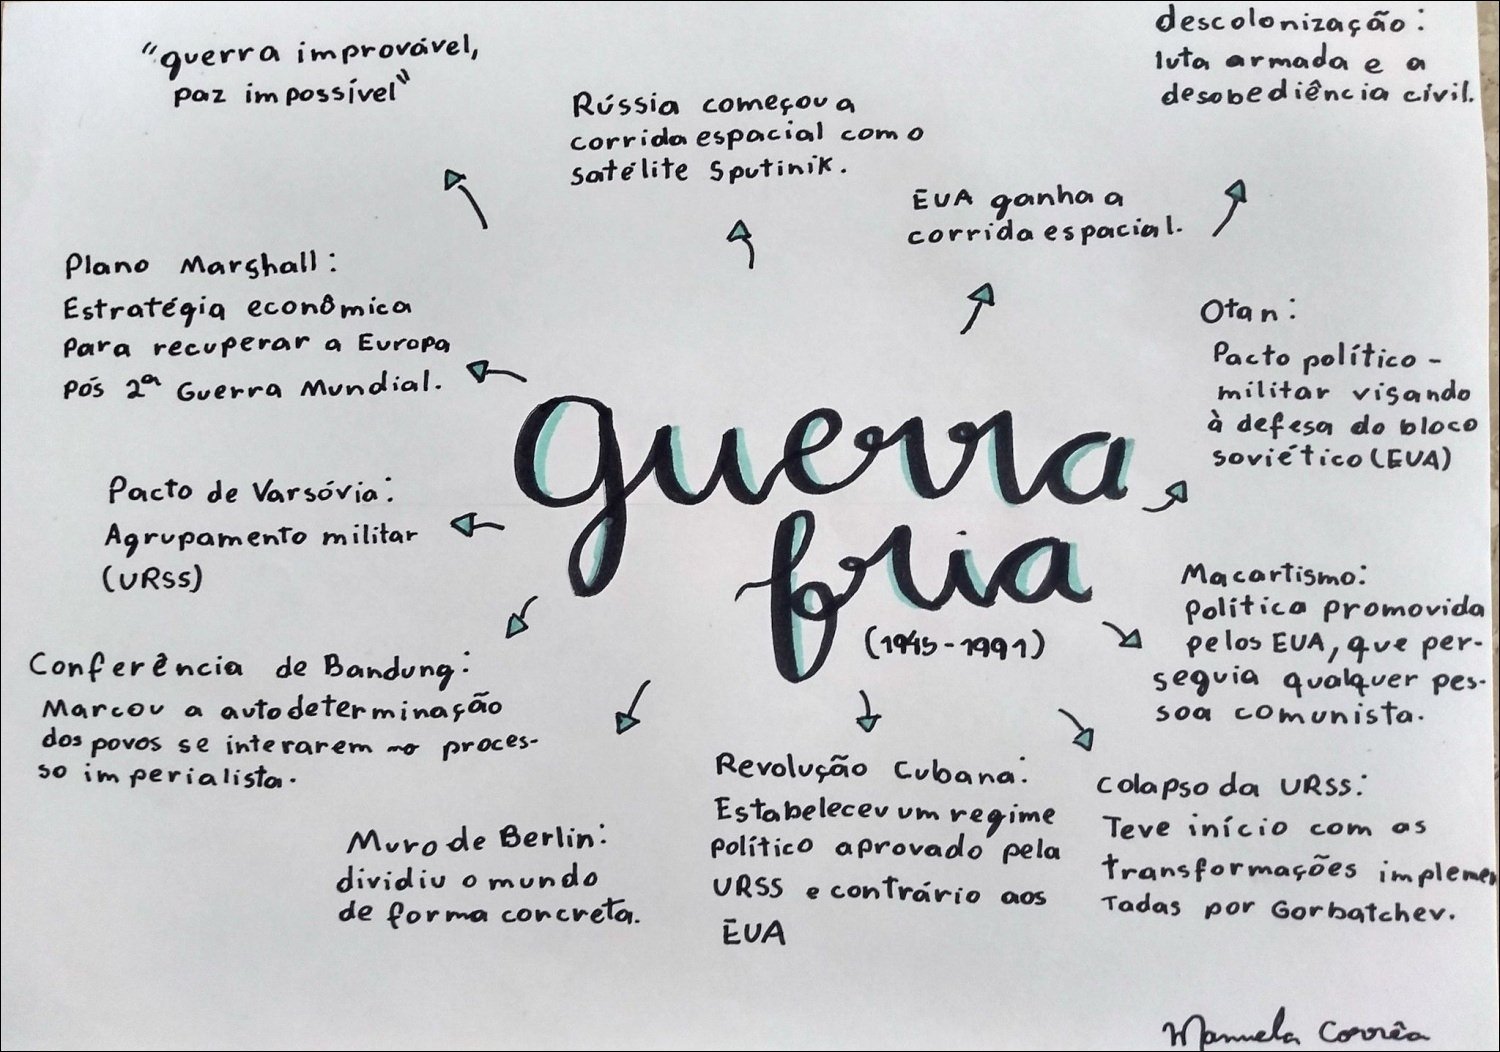 "guerra improvável,
paz impossível"
Rússia começou a
corrida espacial com o
satélite Sputinik.
EUA ganha a
corrida espacial.
descolonização:
luta armada e a
desobediência civil.
Plano Marshall:
Estratégia econômica
para recuperar a Europa
pós 2ª Guerra Mundial.
Otan:
Pacto político-
militar visando
à defesa do bloco
soviético (EUA)
guerra
fria
(1945-1991)
Pacto de Varsóvia:
Agrupamento militar
(URSS)
Macartismo:
política promovida
pelos EUA, que per-
seguia qualquer pes-
soa comunista.
Conferência de Bandung:
Marcou a autodeterminação
dos povos se interarem no proces-
so imperialista.
Muro de Berlin:
dividiu o mundo
de forma concreta.
Revolução Cubana:
Estabeleceu um regime
político aprovado pela
URSS e contrário aos
EUA
Colapso da URSS:
Teve início com as
transformações implemen
tadas por Gorbatchev.
Manuela Corrêa